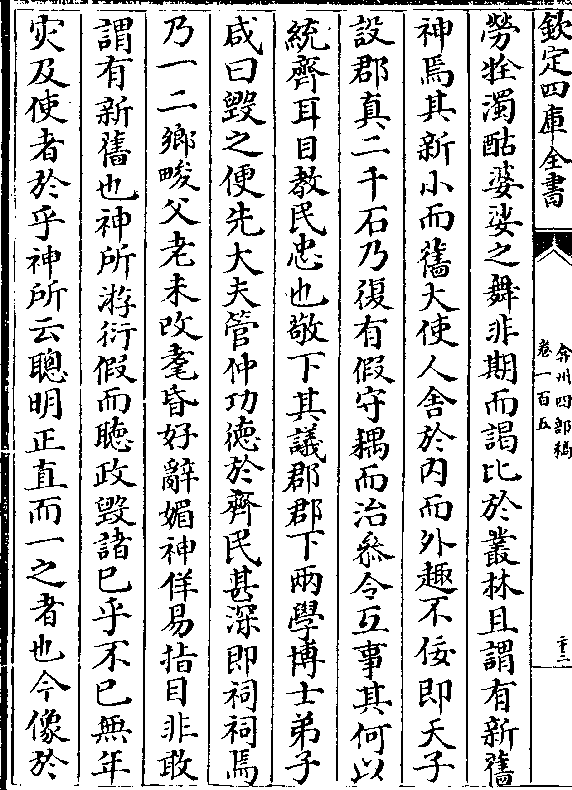 欽定四庫全書
弇州四部稿
卷一百五
二十三
勞牲濁酤婆娑之舞非期而謁比於叢林且謂有新舊
神焉其新小而舊大使人舍於内而外趣不佞即天子
設郡真二千石乃復有假守耦而治叅令互事其何以
統齊耳目教民忠也敬下其議郡郡下兩學博士弟子
咸曰毁之便先大夫管仲功德於齊民甚深即祠祠焉
乃一二鄉畯父老未改耄昏好辭媚神佯易指目非敢
謂有新舊也神所游衍假而聽政毁諸已乎不已無年
灾及使者於乎神所云聰明正直而一之者也今像於